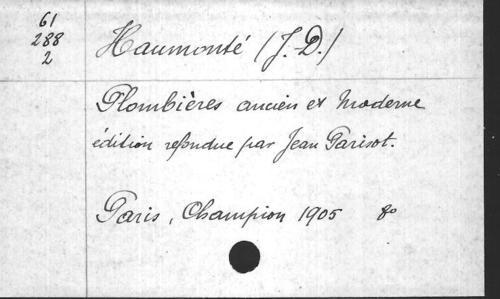 61
288
2
Haumonté (J.-D.)
Plombières ancien et moderne
édition refondue par Jean Parisot.
Paris, Champion 1905 8o